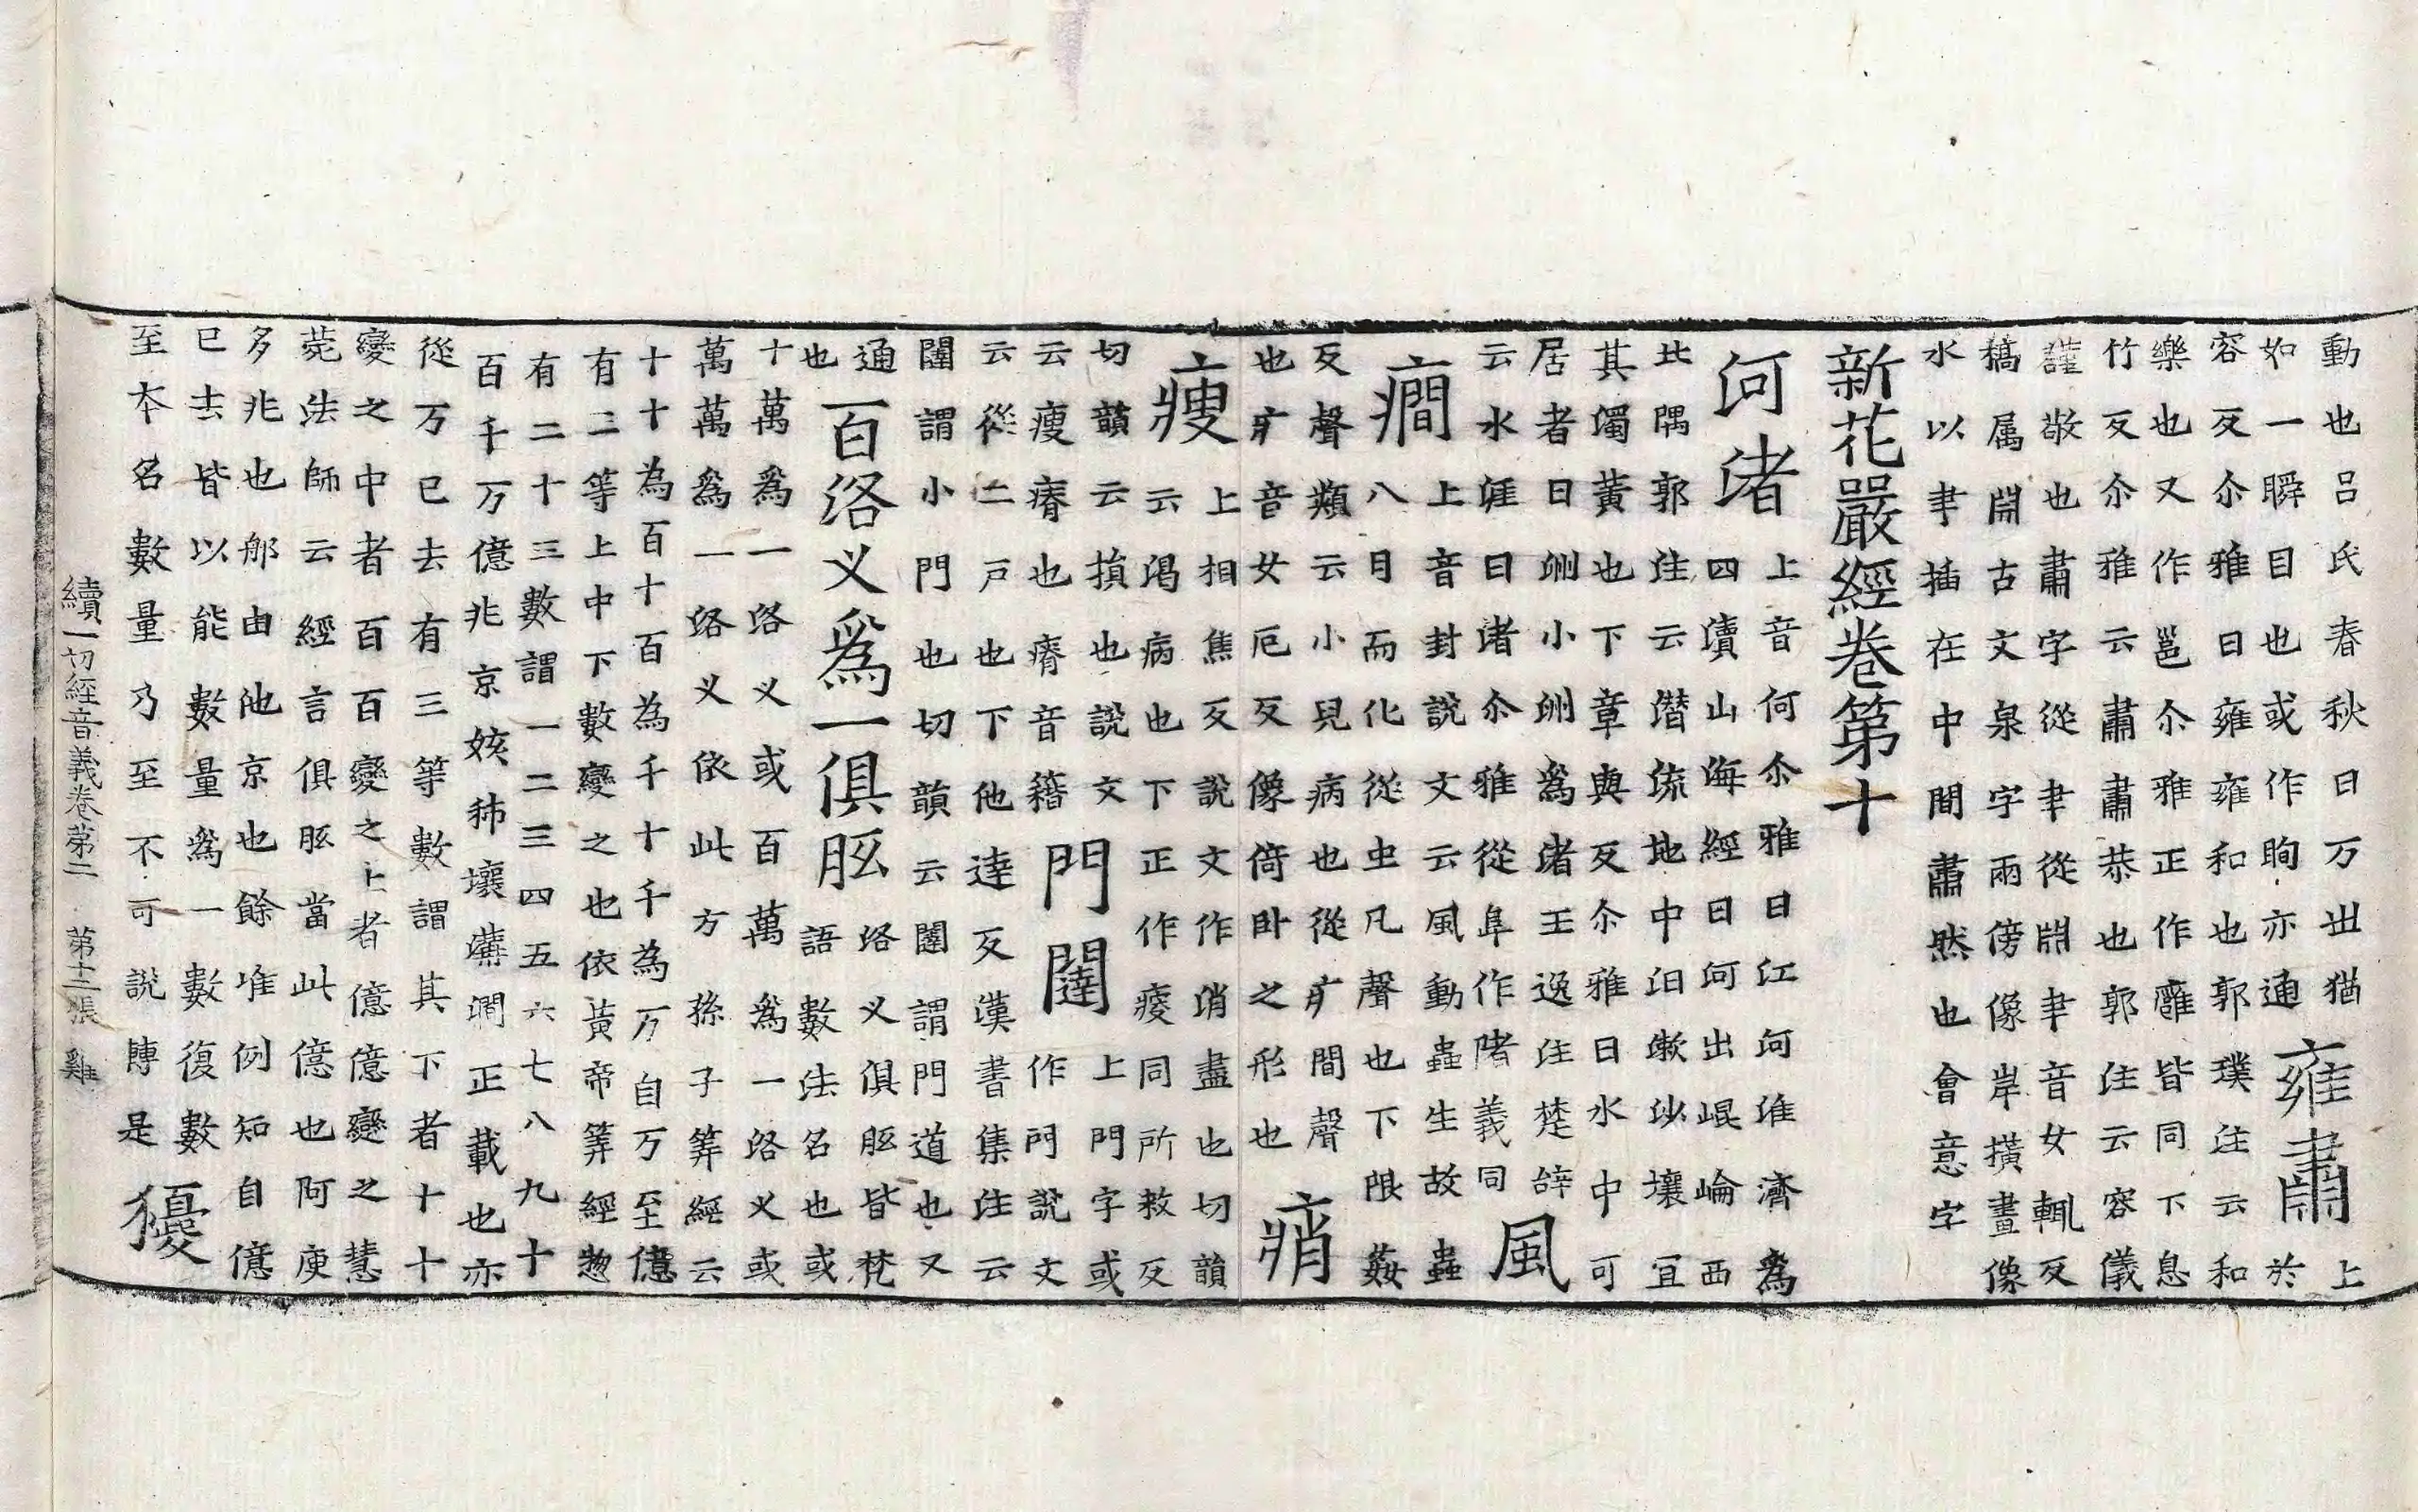 動也呂氏春秋曰万丗猶雍肅上於
如一瞬目也或作眴亦通
容反尒雅曰雍雍和也郭璞注云和
樂也又作邕尒雅正作廱皆同下息
竹反尒雅云肅肅恭也郭注云容儀
謹敬也肅字從聿從𣶒聿音女輒反
稿属𣶒古文泉字兩傍像岸撗畫像
水以聿插在中間肅然也會意字
新花嚴經卷第十
河渚上音何尒雅曰江河淮濟為
四瀆山海經曰河出崐崘西
北隅郭注云潛流地中汩潄沙壤宜
其濁黃也下章與反尒雅曰水中可
居者曰洲小洲為渚王逸注楚辭
云水涯曰渚尒雅從阜作陼義同風
癎上音封說文云風動蟲生故蟲
八日而化從虫凡聲也下限姦
反聲類云小兒病也從疒間聲痟
也疒音女厄反像倚卧之形也
瘦上相焦反說文作消盡也切韻
云渴病也下正作瘦同所救反
切韻云損也說文
云瘦瘠也瘠音籍門闥上門字或作門說文
云從二戶也下他達反漢書集注云
闥謂小門也切韻云闥謂門道也又
通
也一百洛义為一俱胝洛义俱胝皆梵語數法名也或
十萬為一洛义或百萬為一洛义或
萬萬為一洛义依此方孫子筭經云
十十為百十百為千十千為万自万至億
有三等上中下數變之也依黃帝筭經惣
有二十三數謂一二三四五六七八九十
百千万億兆京姟秭壤溝澗正載也亦
從万已去有三等數謂其下者十十
變之中者百百變之上者億億變之慧
菀法師云經言俱胝當此億也阿庾
多兆也那由他京也餘准例知自億
已去皆以能數量為一數復數
至本名數量乃至不可說轉是擾
續一切經音義卷苐二　苐十三張　雞